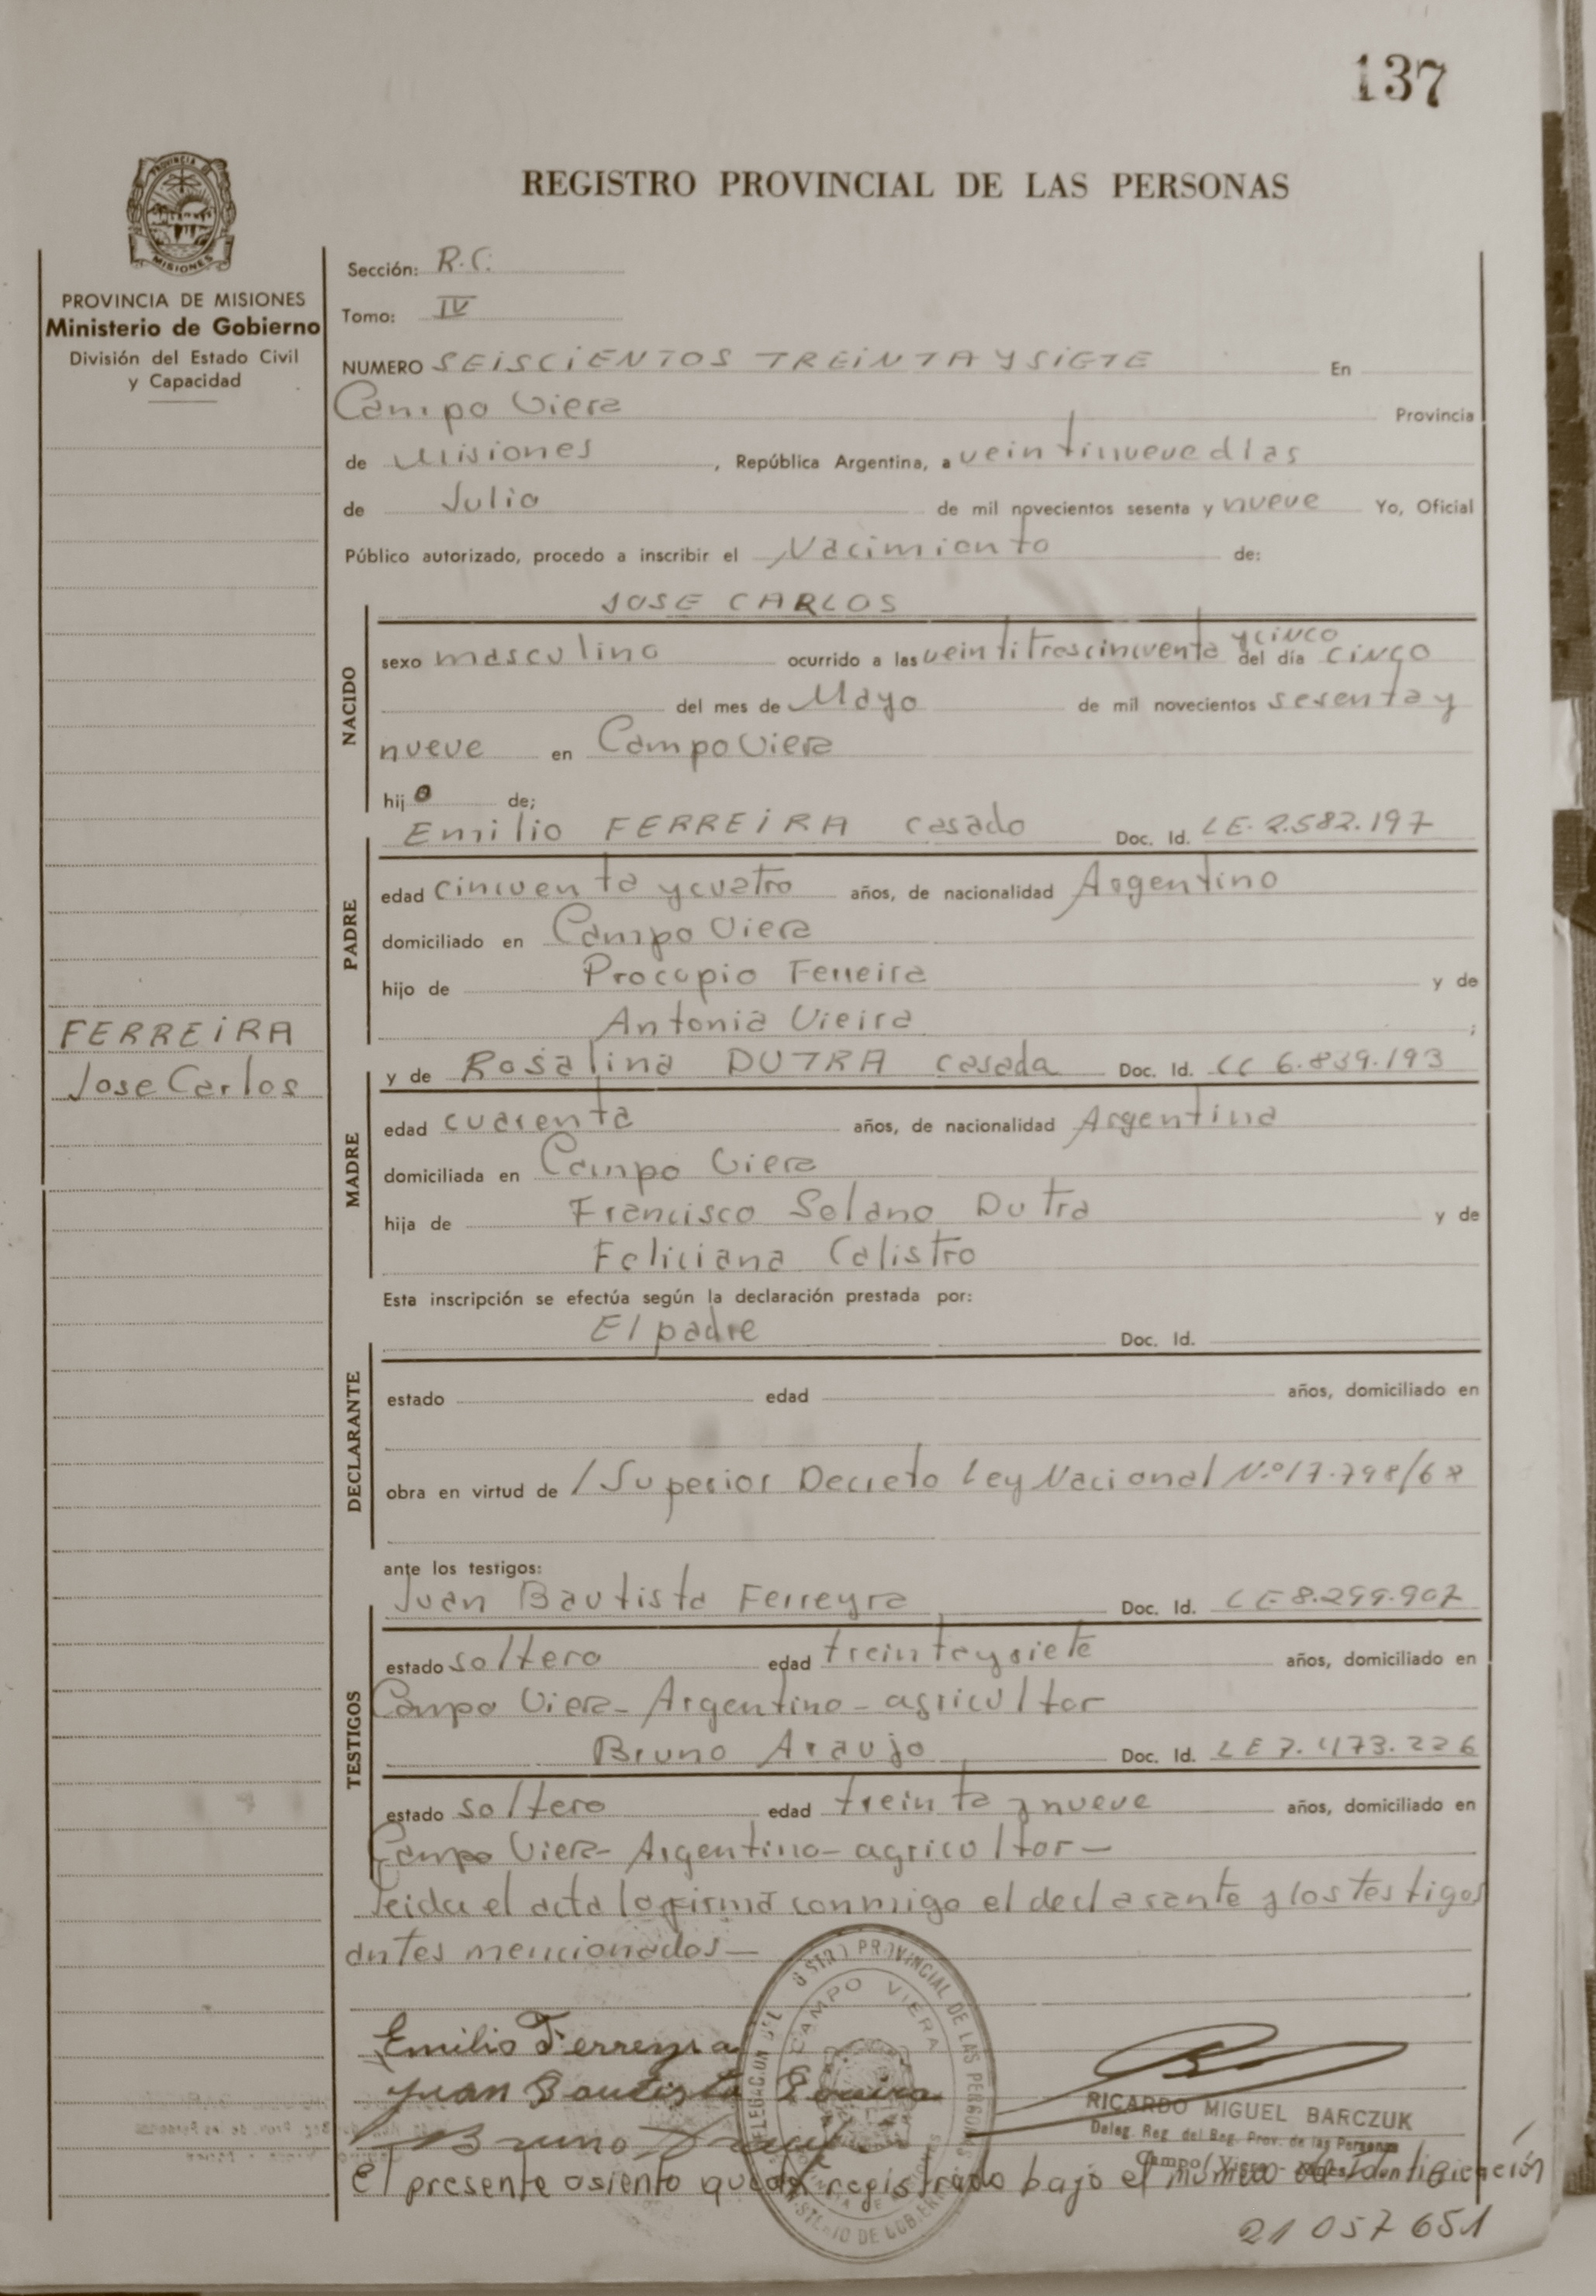 137
REGISTRO PROVINCIAL DE LAS PERSONAS
MISIONES
PROVINCIA DE MISIONES
Ministerio de Gobierno
División del Estado Civil
y Capacidad
FERREIRA
Jose Carlos
Sección: R.C.
Tomo: IV
NUMERO SEISCIENTOS TREINTA Y SIETE En
Campo Viera Provincia
de Misiones, República Argentina, a veintinueve dias
de Julio de mil novecientos sesenta y nueve Yo, Oficial
Público autorizado, procedo a inscribir el Nacimiento de:
NACIDO
JOSE CARLOS
sexo masculino ocurrido a las veintitres cincuenta y cinco del día cinco
del mes de Mayo de mil novecientos sesenta y
nueve en Campo Viera
hijo de;
PADRE
Emilio FERREIRA casado Doc. Id. LE. 2.582.197
edad cincuenta y cuatro años, de nacionalidad Argentino
domiciliado en Campo Viera
hijo de Procopio Ferreira y de
Antonia Vieira ;
MADRE
y de Rosalina DUTRA casada Doc. Id. CC 6.839.193
edad cuarenta años, de nacionalidad Argentina
domiciliada en Campo Viera
hija de Francisco Solano Dutra y de
Feliciana Calistro
Esta inscripción se efectúa según la declaración prestada por:
DECLARANTE
El padre Doc. Id.
estado edad años, domiciliado en
obra en virtud de / Superior Decreto Ley Nacional N.º 17.798/68
ante los testigos:
TESTIGOS
Juan Bautista Ferreyra Doc. Id. LE 8.299.907
estado soltero edad treinta y siete años, domiciliado en
Campo Viera - Argentino - agricultor
Bruno Araujo Doc. Id. LE 7.473.226
estado soltero edad treinta y nueve años, domiciliado en
Campo Viera - Argentino - agricultor -
Leida el acta la firma conmigo el declarante y los testigos
antes mencionados -
Emilio Ferreyra
Juan Bautista
Bruno
CAMPO VIERA
PROVINCIAL DE LAS
RICARDO MIGUEL BARCZUK
Deleg. Reg. del Reg. Prov. de las Personas
Campo Viera -
El presente asiento queda registrado bajo el número de identificación
21 057 651